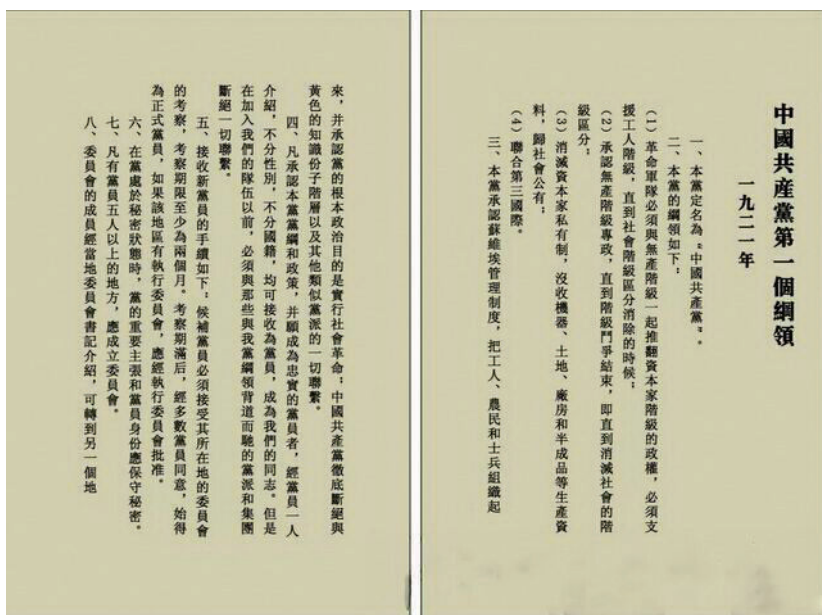 中國共産黨第一個綱領
一九二一年
一、本黨定名為“中國共產黨”。
二、本黨的綱領如下：
（1）革命軍隊必須與無產階級一起推翻資本家階級的政權，必須支
援工人階級，直到社會階級區分消除的時候；
（2）承認無產階級專政，直到階級鬥爭結束，即直到消滅社會的階
級區分；
（3）消滅資本家私有制，沒收機器、土地、廠房和半成品等生產資
料，歸社會公有；
（4）聯合第三國際。
三、本黨承認蘇維埃管理制度，把工人、農民和士兵組織起
來，并承認黨的根本政治目的是實行社會革命；中國共產黨徹底斷絕與
黃色的知識份子階層以及其他類似黨派的一切聯繫。
四、凡承認本黨黨綱和政策，并願成為忠實的黨員者，經黨員一人
介紹，不分性別，不分國籍，均可接收為黨員，成為我們的同志。但是
在加入我們的隊伍以前，必須與那些與我黨綱領背道而馳的黨派和集團
斷絕一切聯繫。
五、接收新黨員的手續如下：候補黨員必須接受其所在地的委員會
的考察，考察期限至少為兩個月。考察期滿后，經多數黨員同意，始得
為正式黨員，如果該地區有執行委員會，應經執行委員會批准。
六、在黨處於秘密狀態時，黨的重要主張和黨員身份應保守秘密。
七、凡有黨員五人以上的地方，應成立委員會。
八、委員會的成員經當地委員會書記介紹，可轉到另一個地